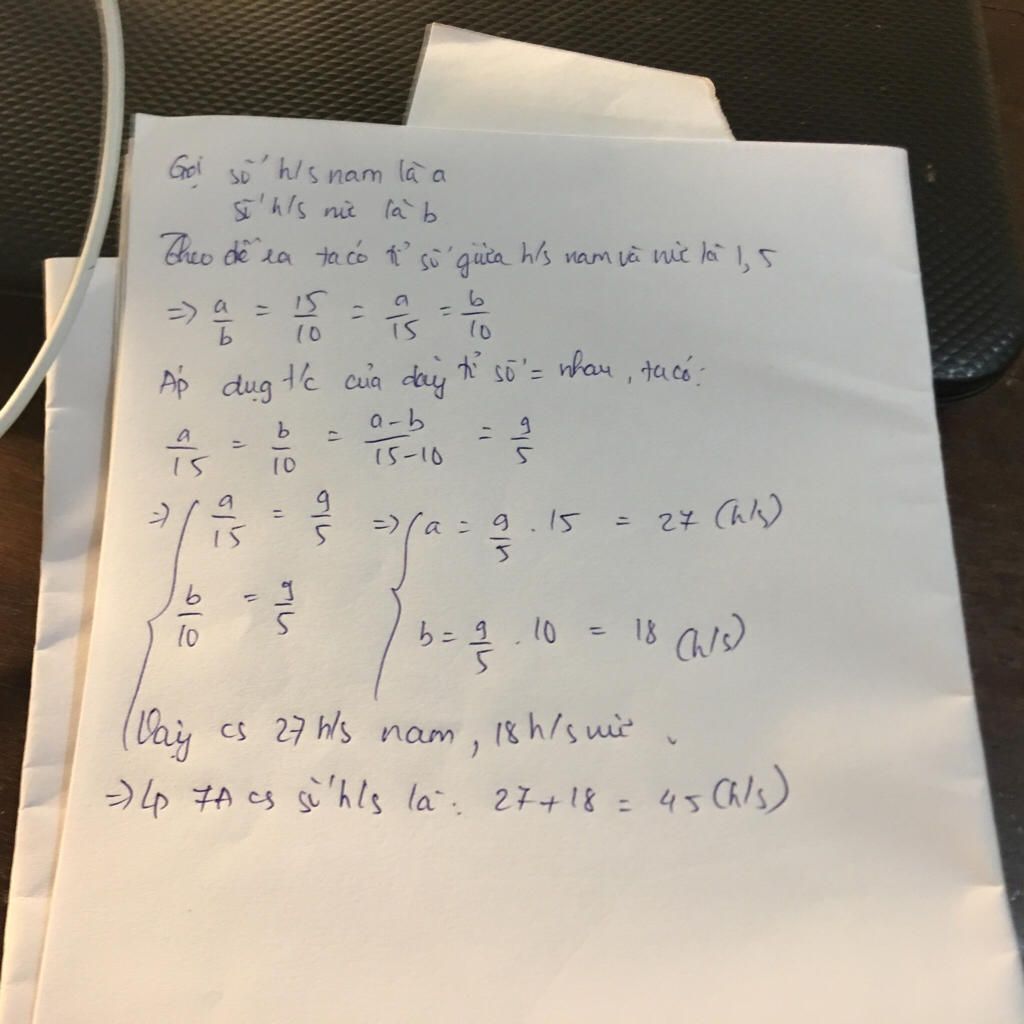 Gọi số h/s nam là a
số h/s nữ là b
Theo đề ra ta có tỉ số giữa h/s nam và nữ là 1,5
=> a/b = 15/10 = a/15 = b/10
Áp dụg t/c của dãy tỉ số = nhau, ta có:
a/15 = b/10 = a-b/15-10 = 9/5
=> { a/15 = 9/5 => { a = 9/5 . 15 = 27 (h/s)
b/10 = 9/5 b = 9/5 . 10 = 18 (h/s)
Vậy có 27 h/s nam, 18 h/s nữ.
=> Lp 7A có số h/s là: 27 + 18 = 45 (h/s)